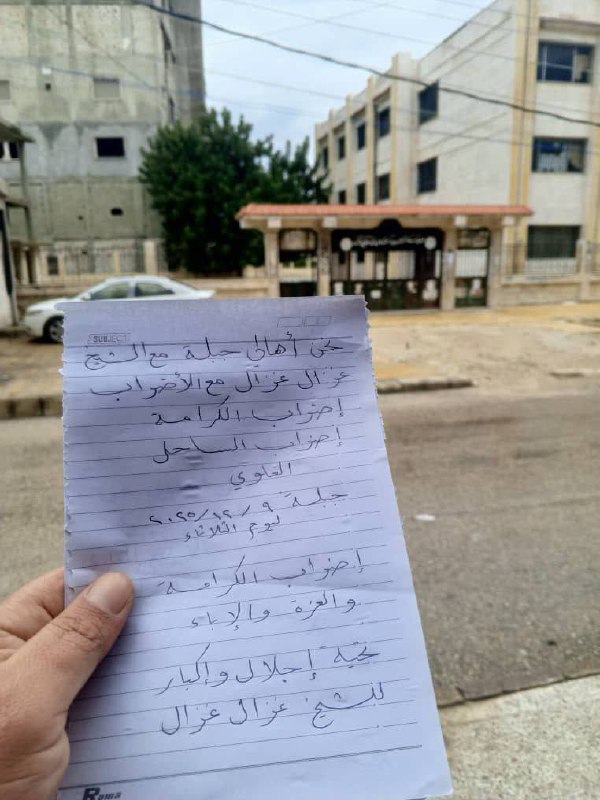 SUBJECT
نحن أهالي جبلة مع الشيخ
غزال غزال مع الأضراب
إضراب الكرامة
إضراب الساحل
العلوي
جبلة ٢٠٢٥/١٢/٩
ليوم الثلاثاء
إضراب الكرامة
والعزة والإباء
تحية إجلال وإكبار
للشيخ غزال غزال
Rama